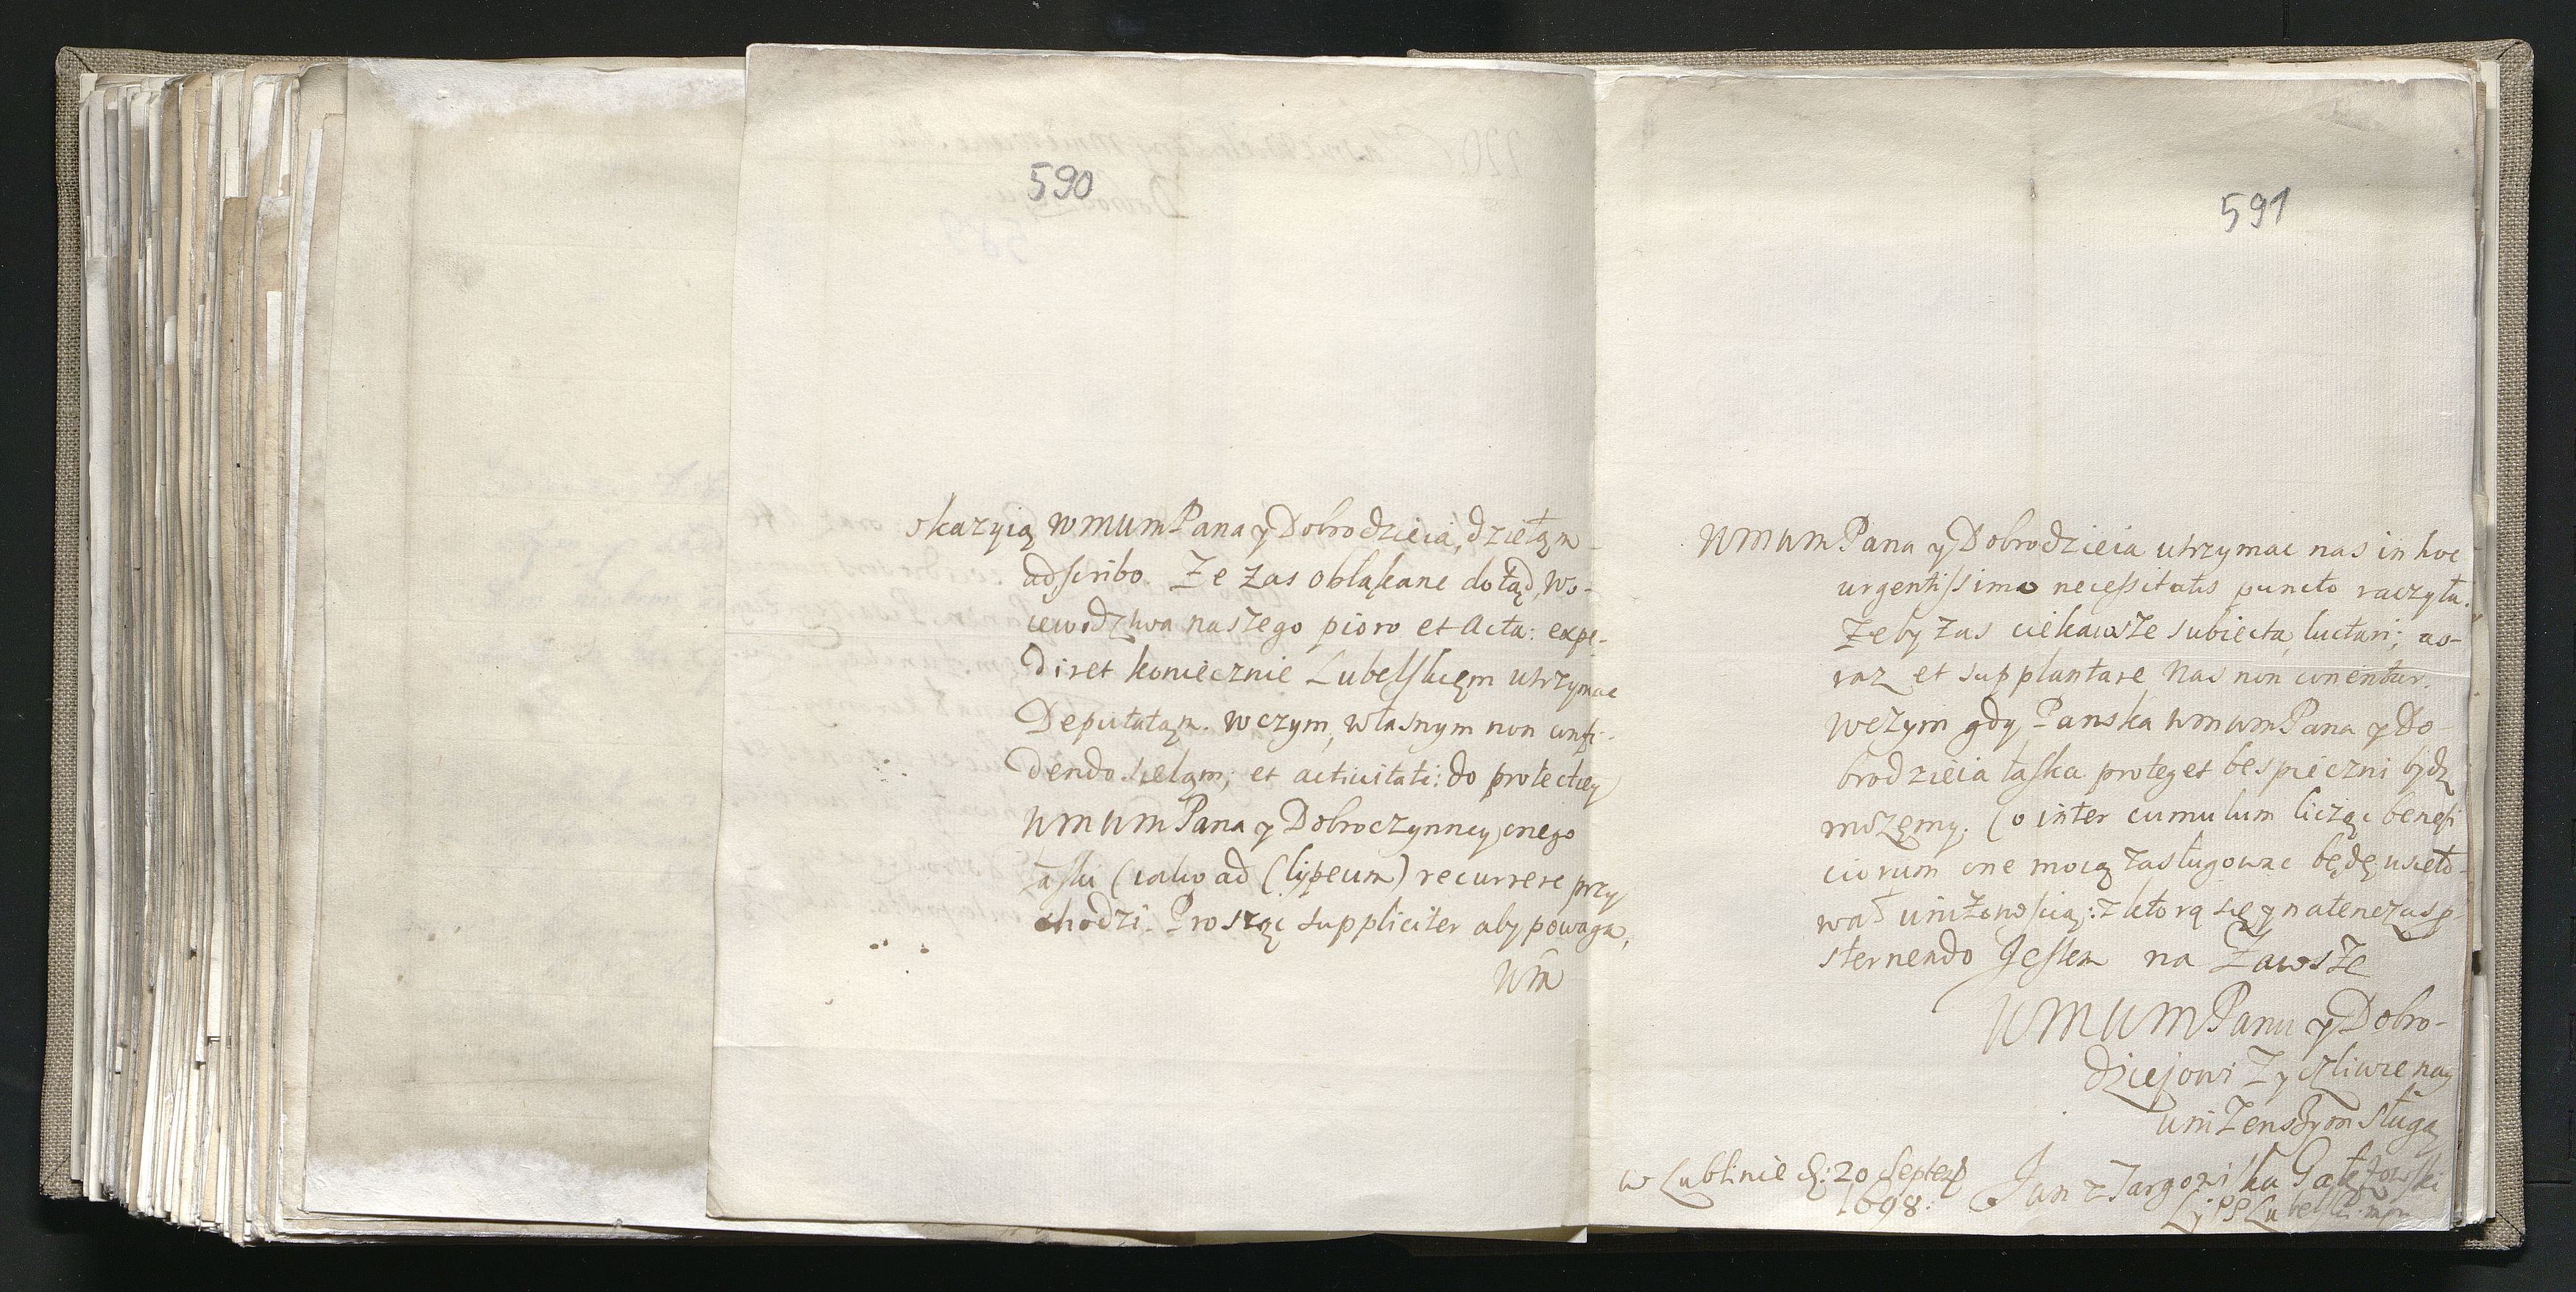 590
skazyią WMWM Pana y Dobrodzieia, dziełęm
adscribo. Ze zas obłąkane dotąd, Wo-
iewodztwa naszego pioro et Acta: expe-
diret koniecznie Lubelskięm utrzymac
Deputatąm. W czym, własnym non confi-
dendo siełąm, et actiuitati: do protectiey
WMWM Pana y Dobroczynney onego
łaski (iako ad Clypeum) recurrere przy
chodzi. Proszęc suppliciter aby powaga,
WM
591
WMWM Pana y Dobrodzieia utrzymac nas in hoc
urgentissimo necessitatis puncto raczyła.
Zeby zas ciekawsze subiecta, luctari; ao-
raz et supplantare Nas non conentur.
W czym gdy Panska WMWM Pana y Do-
brodzieia łaska proteget bespieczni bydz
mozęmy. Co inter cumulum licząc benefi
ciorum one moią zasługowac będę usieło-
wał unizonoscią: z ktorą się y natenczas p-
sternendo Jestem na Zawsze
WMWM Panu y Dobro-
dziejowi Zyczliwie nay
unizenszym sługą
w Lublinie d: 20 Septemb
1698.
Jan z Targowiska Gałęzowski
Ł: PS Lubelski mpr